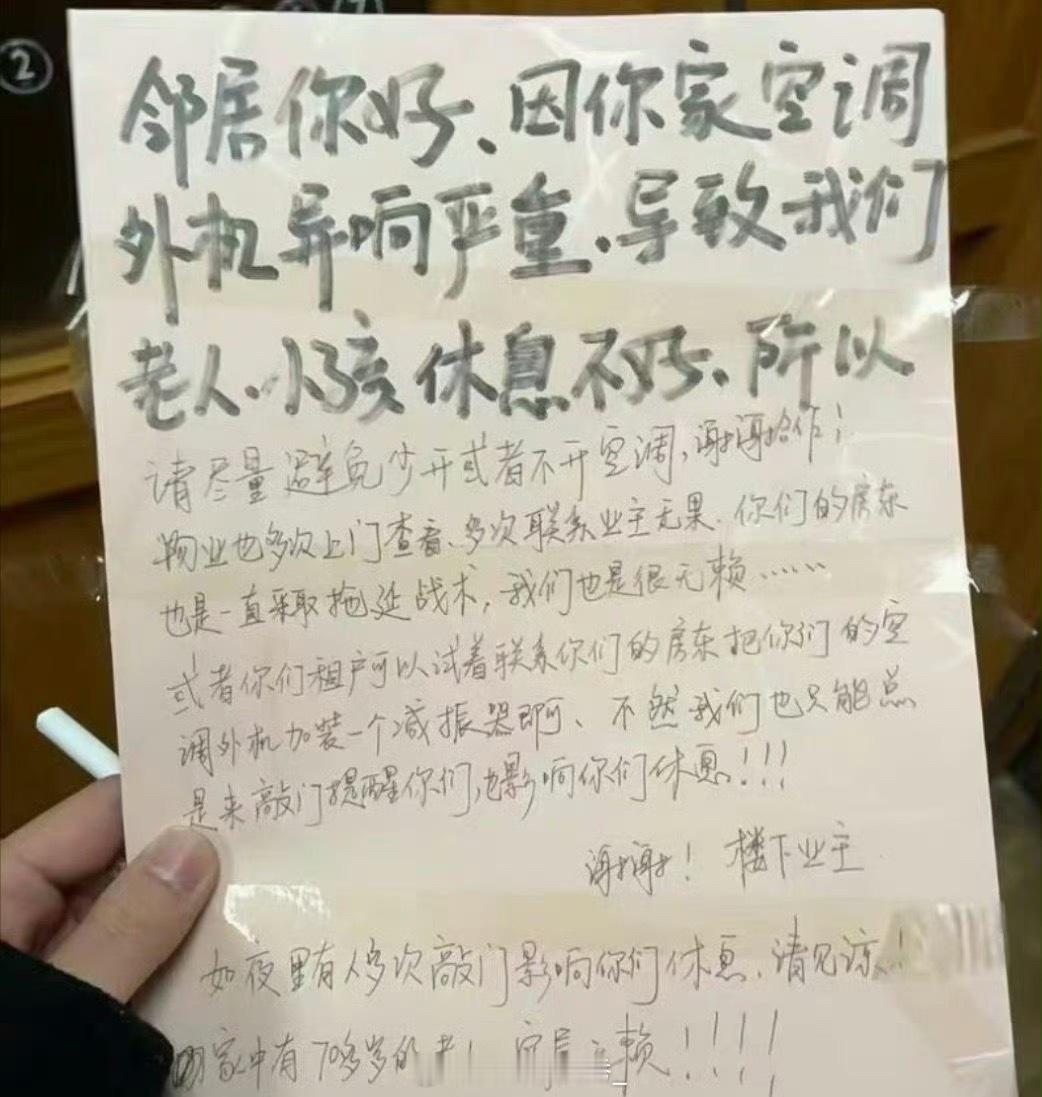 ②
邻居你好、因你家空调
外机异响严重、导致我们
老人、小孩休息不好、所以
请尽量避免少开或者不开空调,谢谢合作!
物业也多次上门查看、多次联系业主无果、你们的房东
也是一直采取拖延战术,我们也是很无赖……
或者你们租户可以试着联系你们的房东把你们的空
调外机加装一个减振器即可、不然我们也只能总
是来敲门提醒你们,也影响你们休息!!!
谢谢! 楼下业主
如夜里有人多次敲门影响你们休息、请见谅!
家中有70多岁的老 赖!!!!